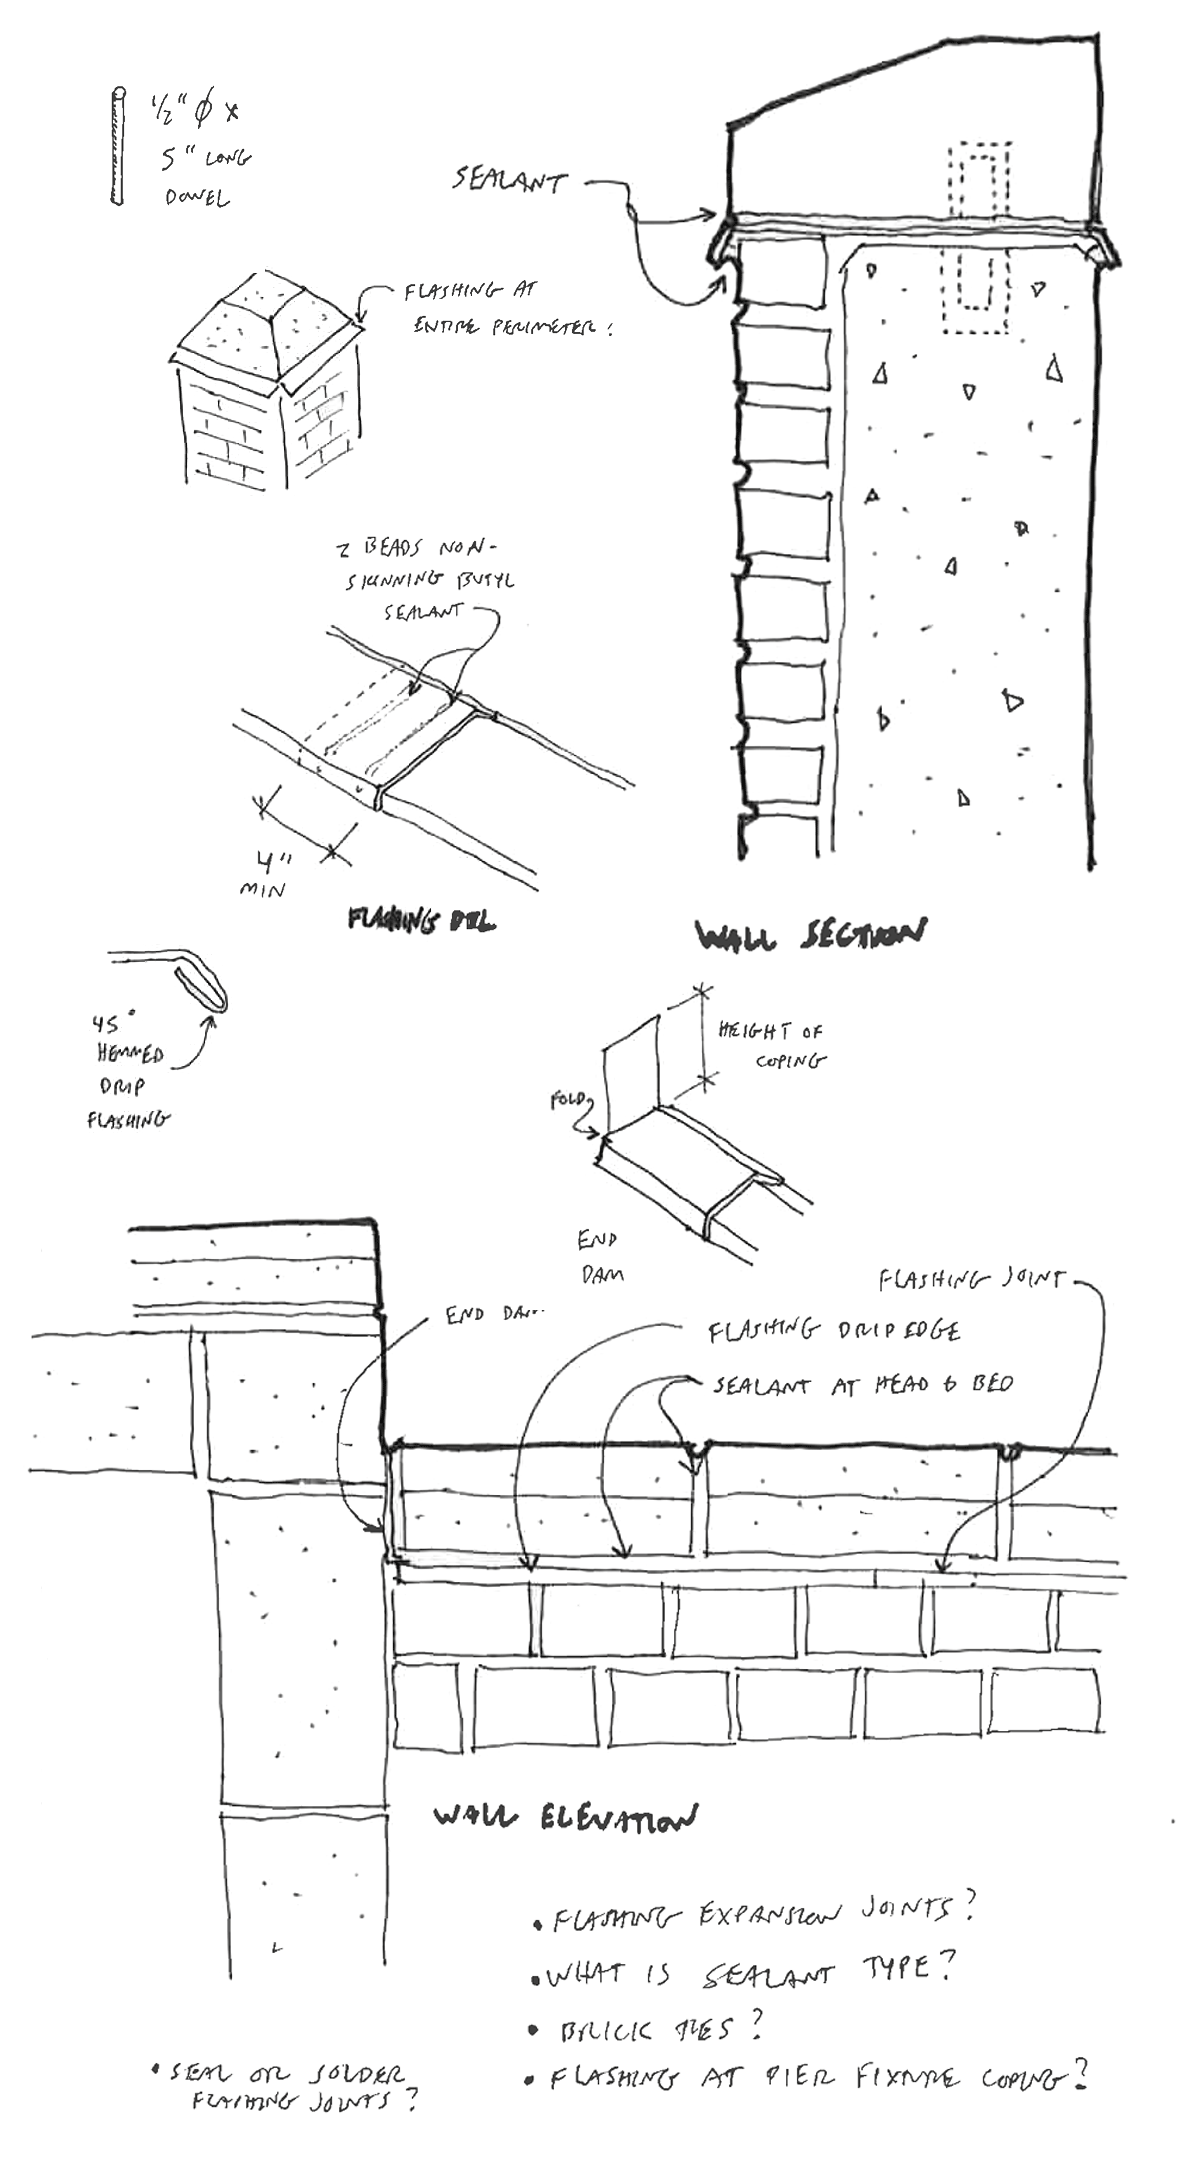 1/2" Ø x
5" LONG
DOWEL
SEALANT
FLASHING AT
ENTIRE PERIMETER!
2 BEADS NON-
SKINNING BUTYL
SEALANT
4"
MIN
FLASHING DTL
WALL SECTION
45°
HEMMED
DRIP
FLASHING
HEIGHT OF
COPING
FOLD
END
DAM
FLASHING JOINT
END DAM
FLASHING DRIP EDGE
SEALANT AT HEAD & BED
WALL ELEVATION
• FLASHING EXPANSION JOINTS?
• WHAT IS SEALANT TYPE?
• BRICK TIES?
• FLASHING AT PIER FIXTURE COPING?
• SEAL OR SOLDER
FLASHING JOINTS?